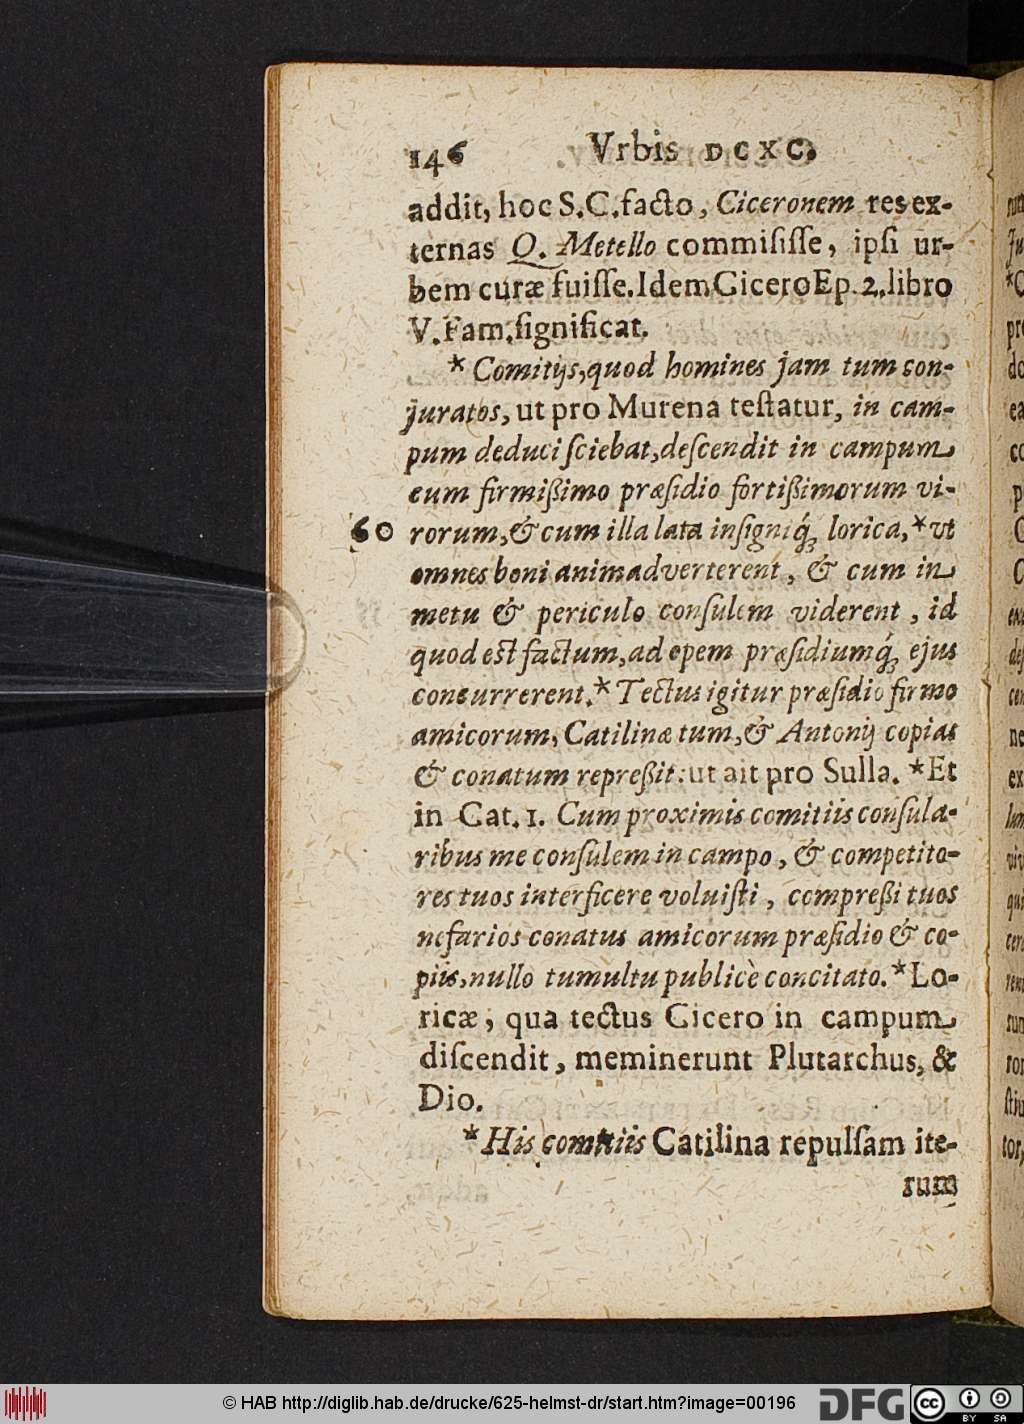 146 Vrbis DCXC.
addit, hoc S.C. facto, Ciceronem res ex-
ternas Q. Metello commiſiſſe, ipſi ur-
bem curæ fuiſſe. Idem Cicero Ep. 2. libro
V. Fam. ſignificat.
* Comitijs, quod homines jam tum con-
juratos, ut pro Murena teſtatur, in cam-
pum deduci ſciebat, deſcendit in campum
cum firmißimo præſidio fortißimorum vi-
60 rorum, & cum illa lata inſigniq́; lorica, * vt
omnes boni animadverterent, & cum in
metu & periculo conſulem viderent, id
quod est factum, ad opem præſidiumq́; ejus
concurrerent. * Tectus igitur præſidio firmo
amicorum, Catilinæ tum, & Antonij copias
& conatum repreßit: ut ait pro Sulla. * Et
in Cat. 1. Cum proximis comitiis conſula-
ribus me conſulem in campo, & competito-
res tuos interficere voluiſti, compreßi tuos
nefarios conatus amicorum præſidio & co-
piis, nullo tumultu publicè concitato. * Lo-
ricæ, qua tectus Cicero in campum
diſcendit, meminerunt Plutarchus, &
Dio.
* His comitiis Catilina repulſam ite-
rum
© HAB http://diglib.hab.de/drucke/625-helmst-dr/start.htm?image=00196 DFG cc BY SA